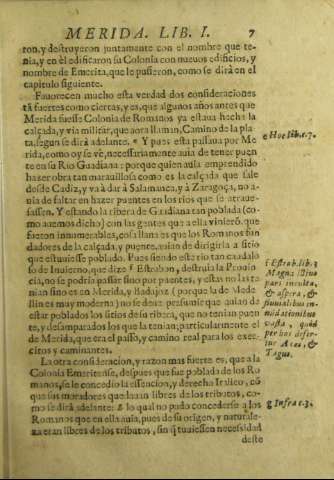 MERIDA. LIB. I. 7
ron, y destruyeron juntamente con el nombre que te-
nia, y en èl edificaron su Colonia con nueuos edificios, y
nombre de Emerita, que le pusieron, como se dirà en el
capitulo siguiente.
Fauorecen mucho esta verdad dos consideraciones
tã fuertes como ciertas, y es, que algunos años antes que
Merida fuesse Colonia de Romanos ya estaua hecha la
calçada, y via militar, que aora llaman, Camino de la pla-
ta, segun se dirà adelante. e Y pues esta passaua por Me
e Hoc lib. c. 7.
rida, como oy se vè, necessariamente auia de tener puen
te en su Rio Guadiana: porque quien auia emprendido
hazer obra tan marauillosa como es la calçada que sale
desde Cadiz, y và à dar à Salamanca, y à Zaragoça, no a-
uia de faltar en hazer puentes en los rios que se atraue-
sassen. Y estando la ribera de Guadiana tan poblada (co-
mo auemos dicho) con las gentes que a ella vinierõ, que
fueron innumerables, cosa llana es que los Romanos fun
dadores de la calçada, y puente, auian de dirigirla a sitio
que estuuiesse poblado. Pues siendo este rio tan caudalo
so de Inuierno, que dize f Estrabon, destruìa la Prouin
f Estrab. lib. 3
cia, no se podria passar sino por puentes, y estas no las te
Magna istius
nian sino es en Merida, y Badajoz (porque la de Mede
pars inculta,
llin es muy moderna) no se deue presumir que auian de
& aspera, &
estar poblados los sitios de su ribera, que no tenian puen
fluminibus in-
te, y desamparados los que la tenian; particularmente el
undationibus
de Merida, que era el passo, y camino real para los exer-
vasta, quid
citos y caminantes.
per hos defer-
tur Anas, &
Tagus.
La otra consideracion, y razon mas fuerte es, que a la
Colonia Emeritense, despues que fue poblada de los Ro
manos, se le concedio la essencion, y derecho Italico, cõ
que sus moradores quedauan libres de tributos, co-
mo se dirà adelante: g lo qual no pudo concederse a los
g Infra c. 3.
Romanos que en ella auia, pues de su origen, y naturale-
za eran libres de los tributos, sin q̃ tuuiessen necessidad
deste